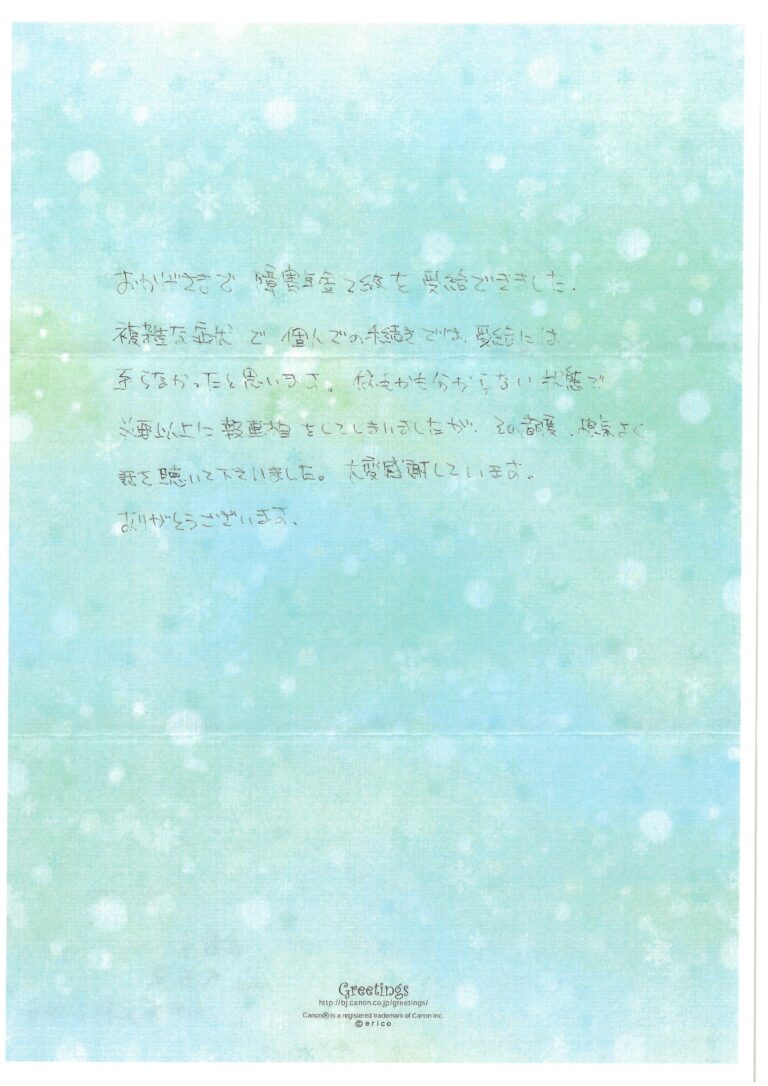 おかげさまで 障害年金2級を 受給できました.
複雑な症状 で 個人での手続きでは、受給には
至らなかったと思います。何もかも分からない 状態で
必要以上に お電話をしてしまいましたが、その都度、根気よく
話を聴いて下さいました。大変感謝しています。
ありがとうございます.
Greetings
http://bj.canon.co.jp/greetings/
Canon® is a registered trademark of Canon Inc.
© erico